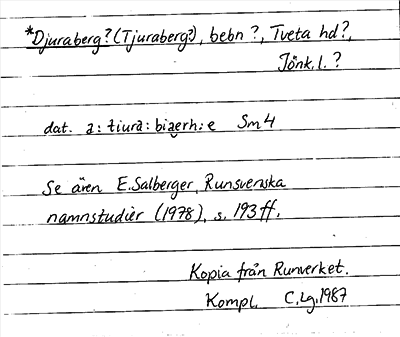 *Djuraberg? (Tjuraberg?), bebn ?, Tveta hd?,
Jönk. l. ?
dat. a : tiura : biaerh : e Sm 4
Se även E. Salberger, Runsvenska
namnstudier (1978), s. 193 ff.
Kopia från Runverket.
Kompl. C. Lg. 1987